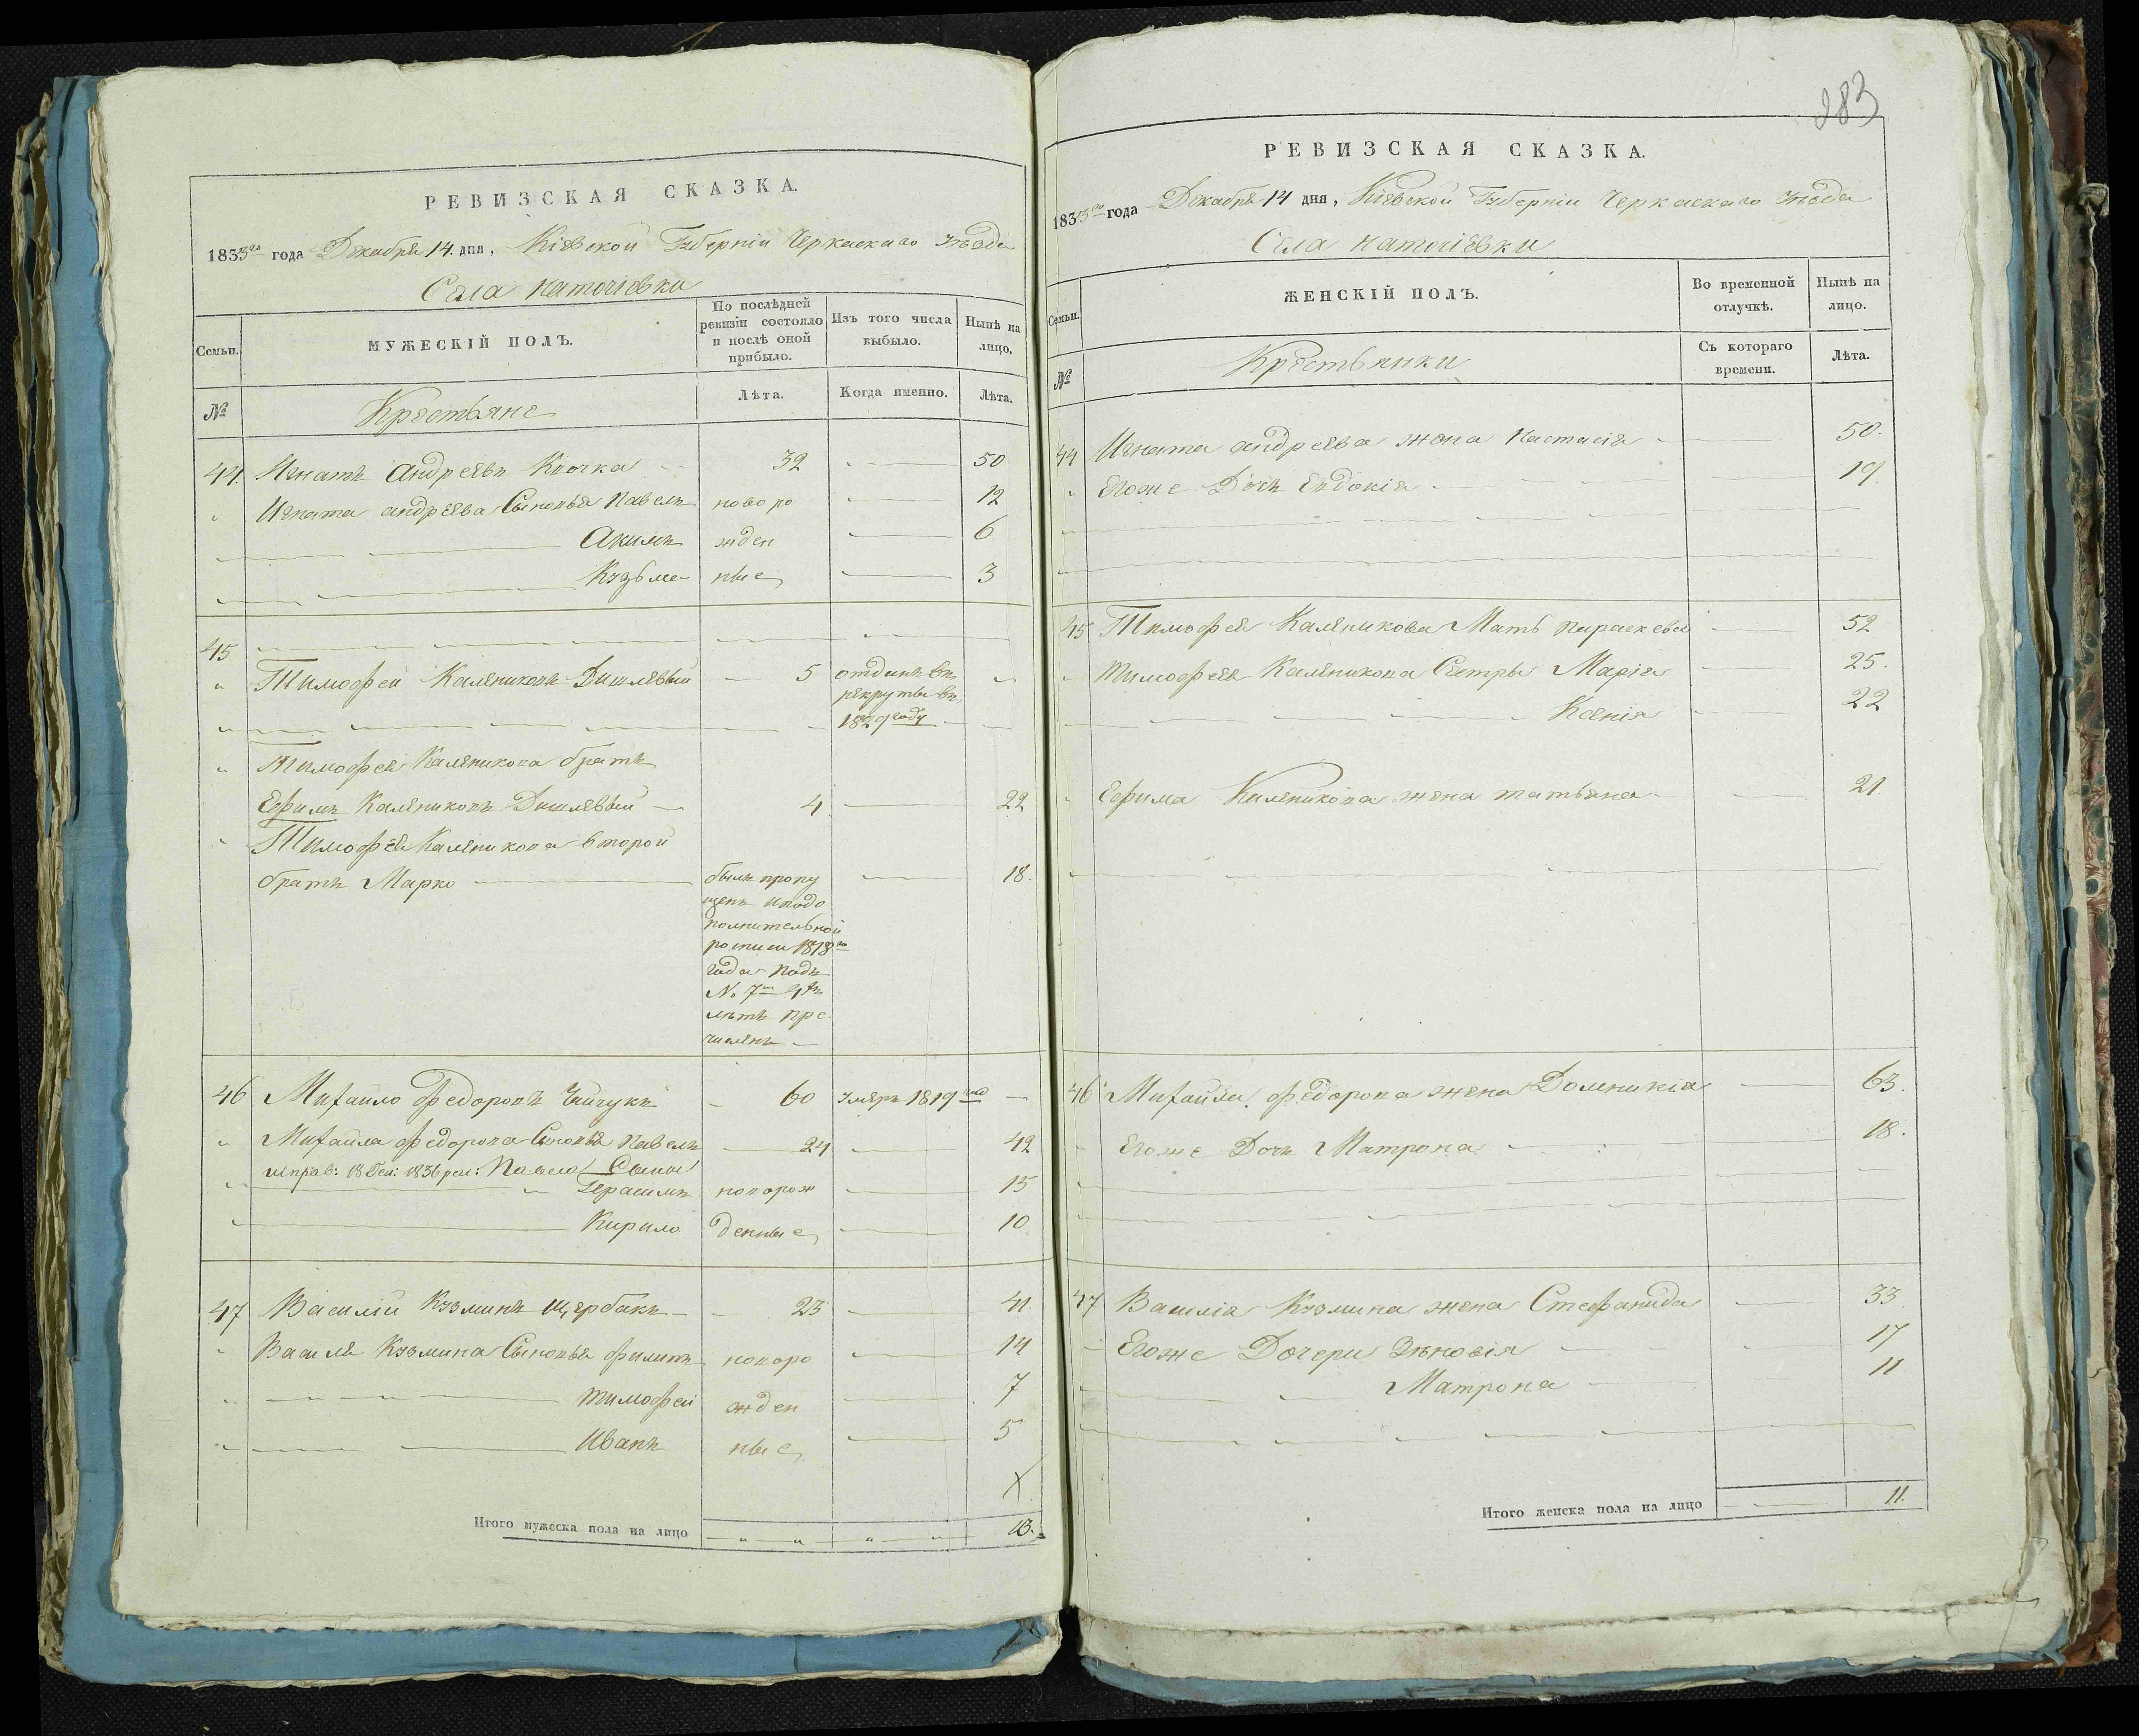 РЕВИЗСКАЯ СКАЗКА.
1833го года Декабря 14. дня, Кіевской Губерніи Черкаскаго Уѣзда
Села
Семьи.
МУЖЕСКІЙ ПОЛЪ.
По послѣдней ревизіи состояло и послѣ оной прибыло.
Изъ того числа выбыло.
Нынѣ на лицо.
№
Крестьяне
Лѣта.
Когда именно.
Лѣта.
44. Игнатъ Андреевъ 32 50
Игната андреева Сыновья Павелъ новоро 12
Акимъ жден 6
Кузьма ные 3
45
Тимофей Калениковъ 5 отданъ въ
рекруты въ
1829 году
Тимофея Каленикова братъ
Ефимъ Калениковъ 4 22
Тимофея Каленикова второй
братъ Марко былъ пропу 18.
щенъ иподо
полнительной
росписи 1818го
года подъ
№ 7м 4хъ
лѣтъ при
численъ
46 Михайло Федоровъ 60 умеръ 1819 год
Михайла Федорова Сыновья Павелъ 24 42
Павела Сыны
Герасимъ новорож 15
Кирило денные 10
47 Василій Кузминъ Щербакъ 23 41.
Василя Кузмина Сыновья Филипъ новоро 14
тимофей жден 7
Иванъ ные 5
Итого мужеска пола на лицо 13.
283
РЕВИЗСКАЯ СКАЗКА.
1833го года Декабря 14 дня, Кіевской Губерніи Черкаскаго Уѣзда
Села
Семьи.
ЖЕНСКІЙ ПОЛЪ.
Во временной отлучкѣ.
Нынѣ на лицо.
№
Крестьянки
Съ котораго времени.
Лѣта.
44 Игната андреева жена Настасія 50.
Егоже Дочь Евдокія 19.
45 Тимофея Каленикова Мать параскева 52
тимофея Каленикова Сестры Марія 25.
Ксенія 22
Ефима Каленикова жена татьяна 21.
46 Михайла федорова жена Домникія 63.
Егоже Дочь Матрона 18.
47 Василія Кузмина жена Стефанида 33
Егоже Дочери Зѣновія 17
Матрона 11
Итого женска пола на лицо 11.